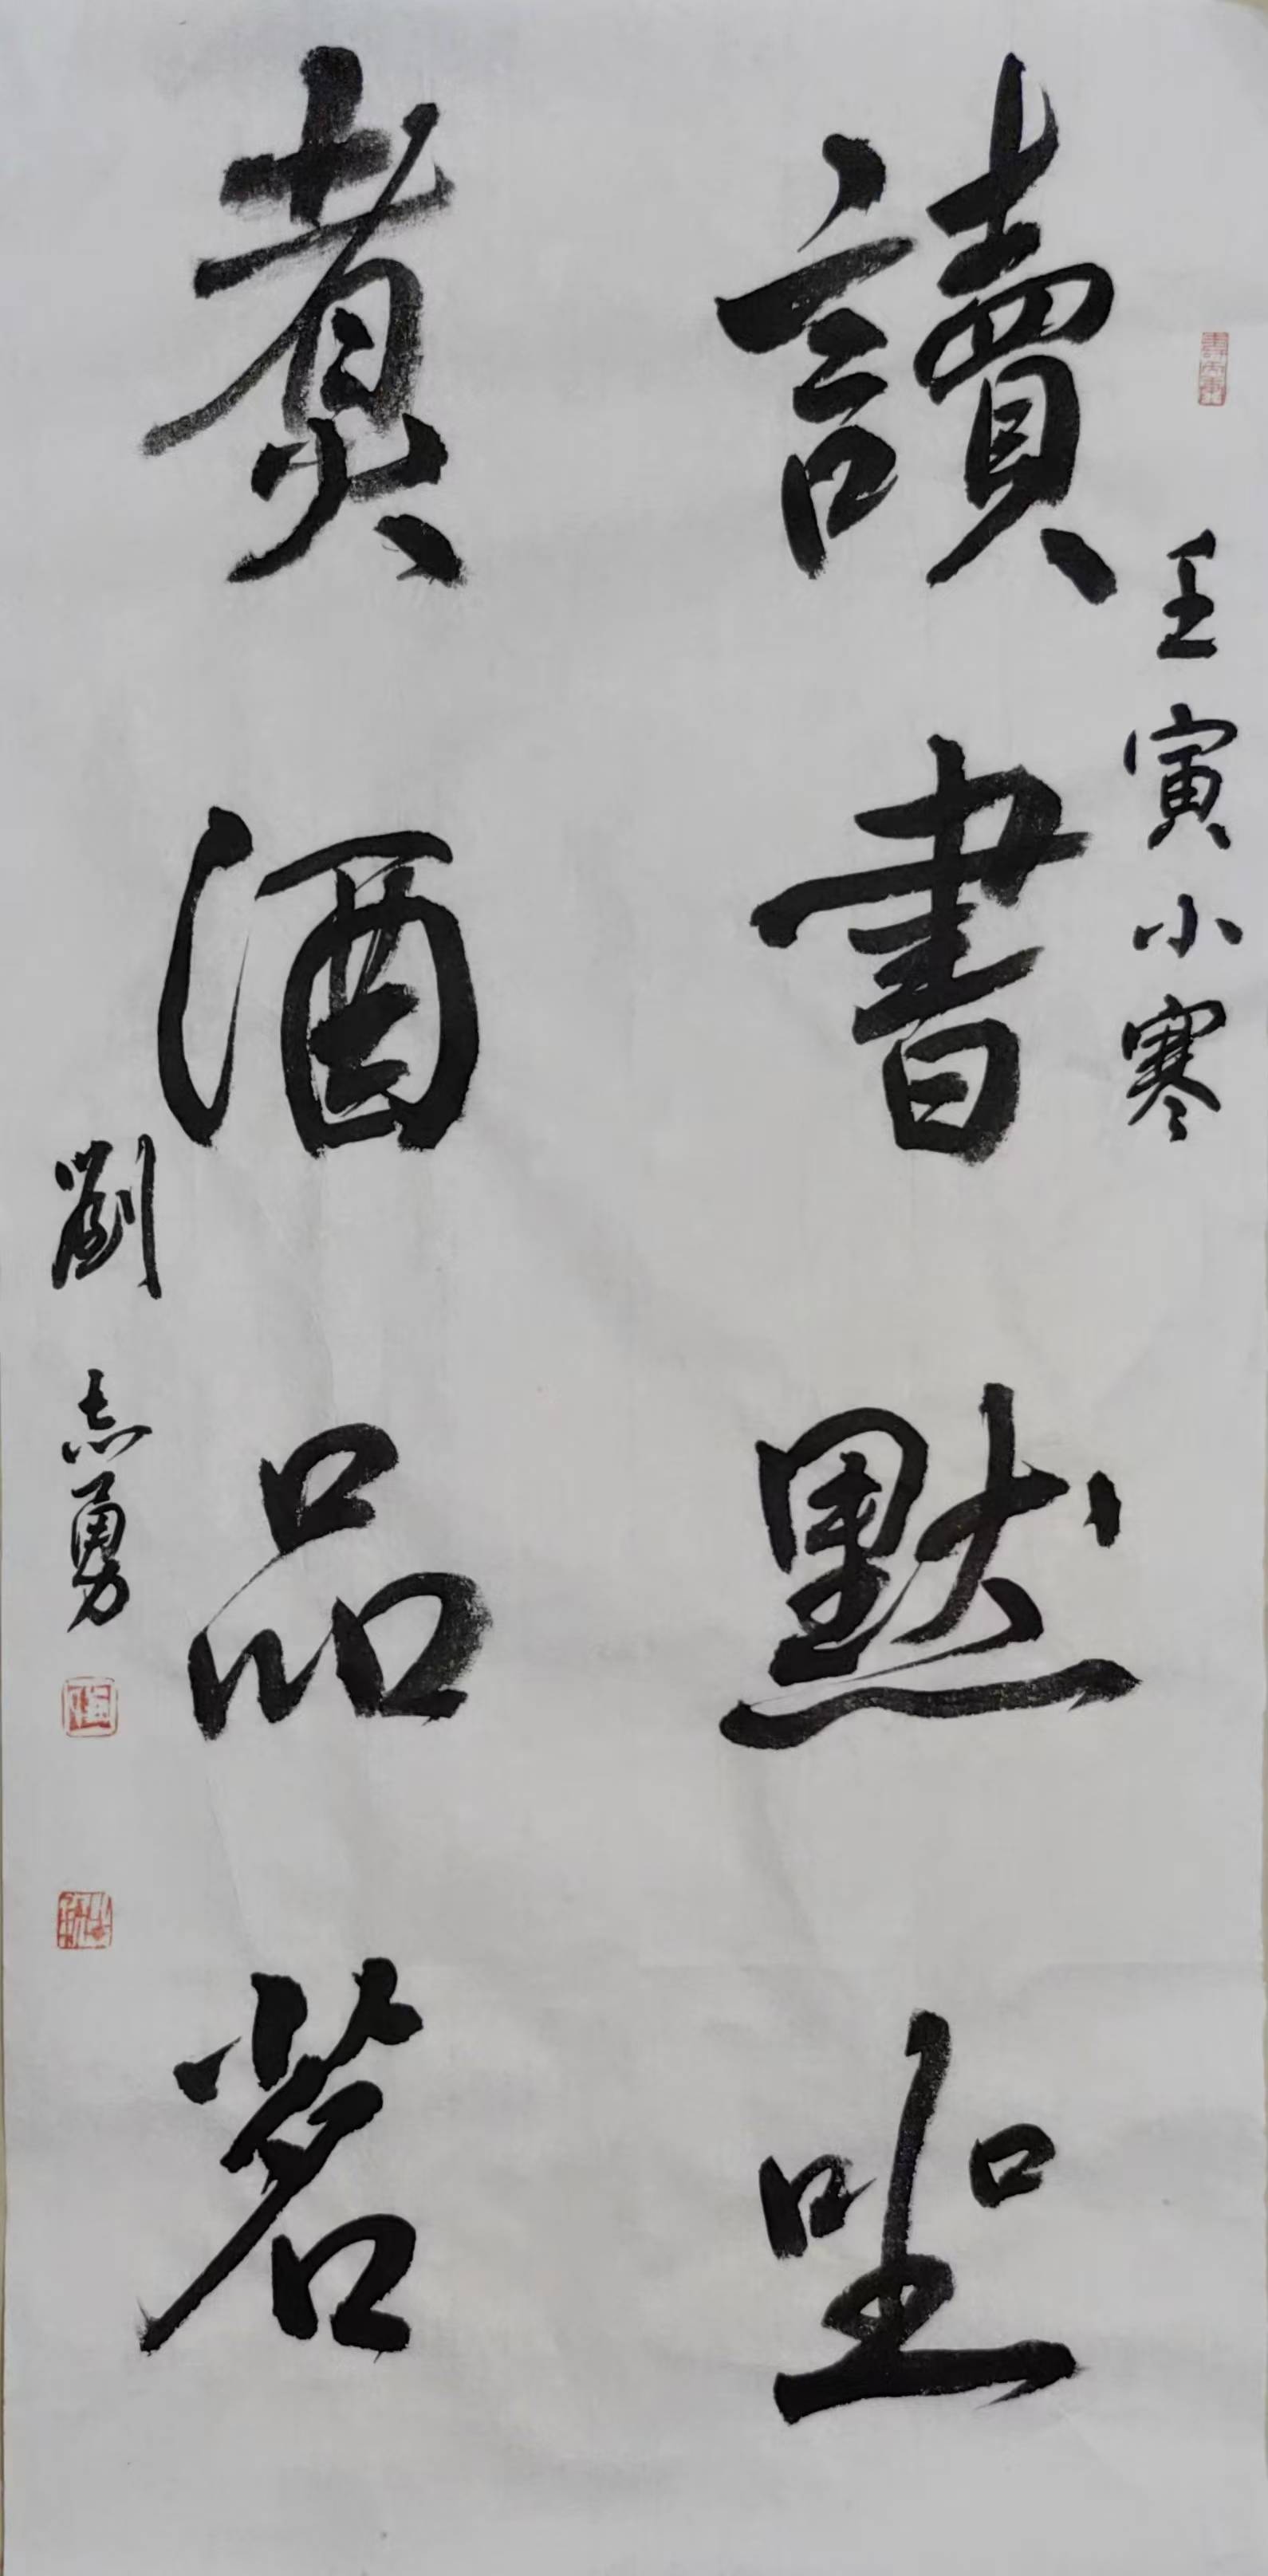 壬寅小寒
讀書默坐
煑酒品茗
劉志勇